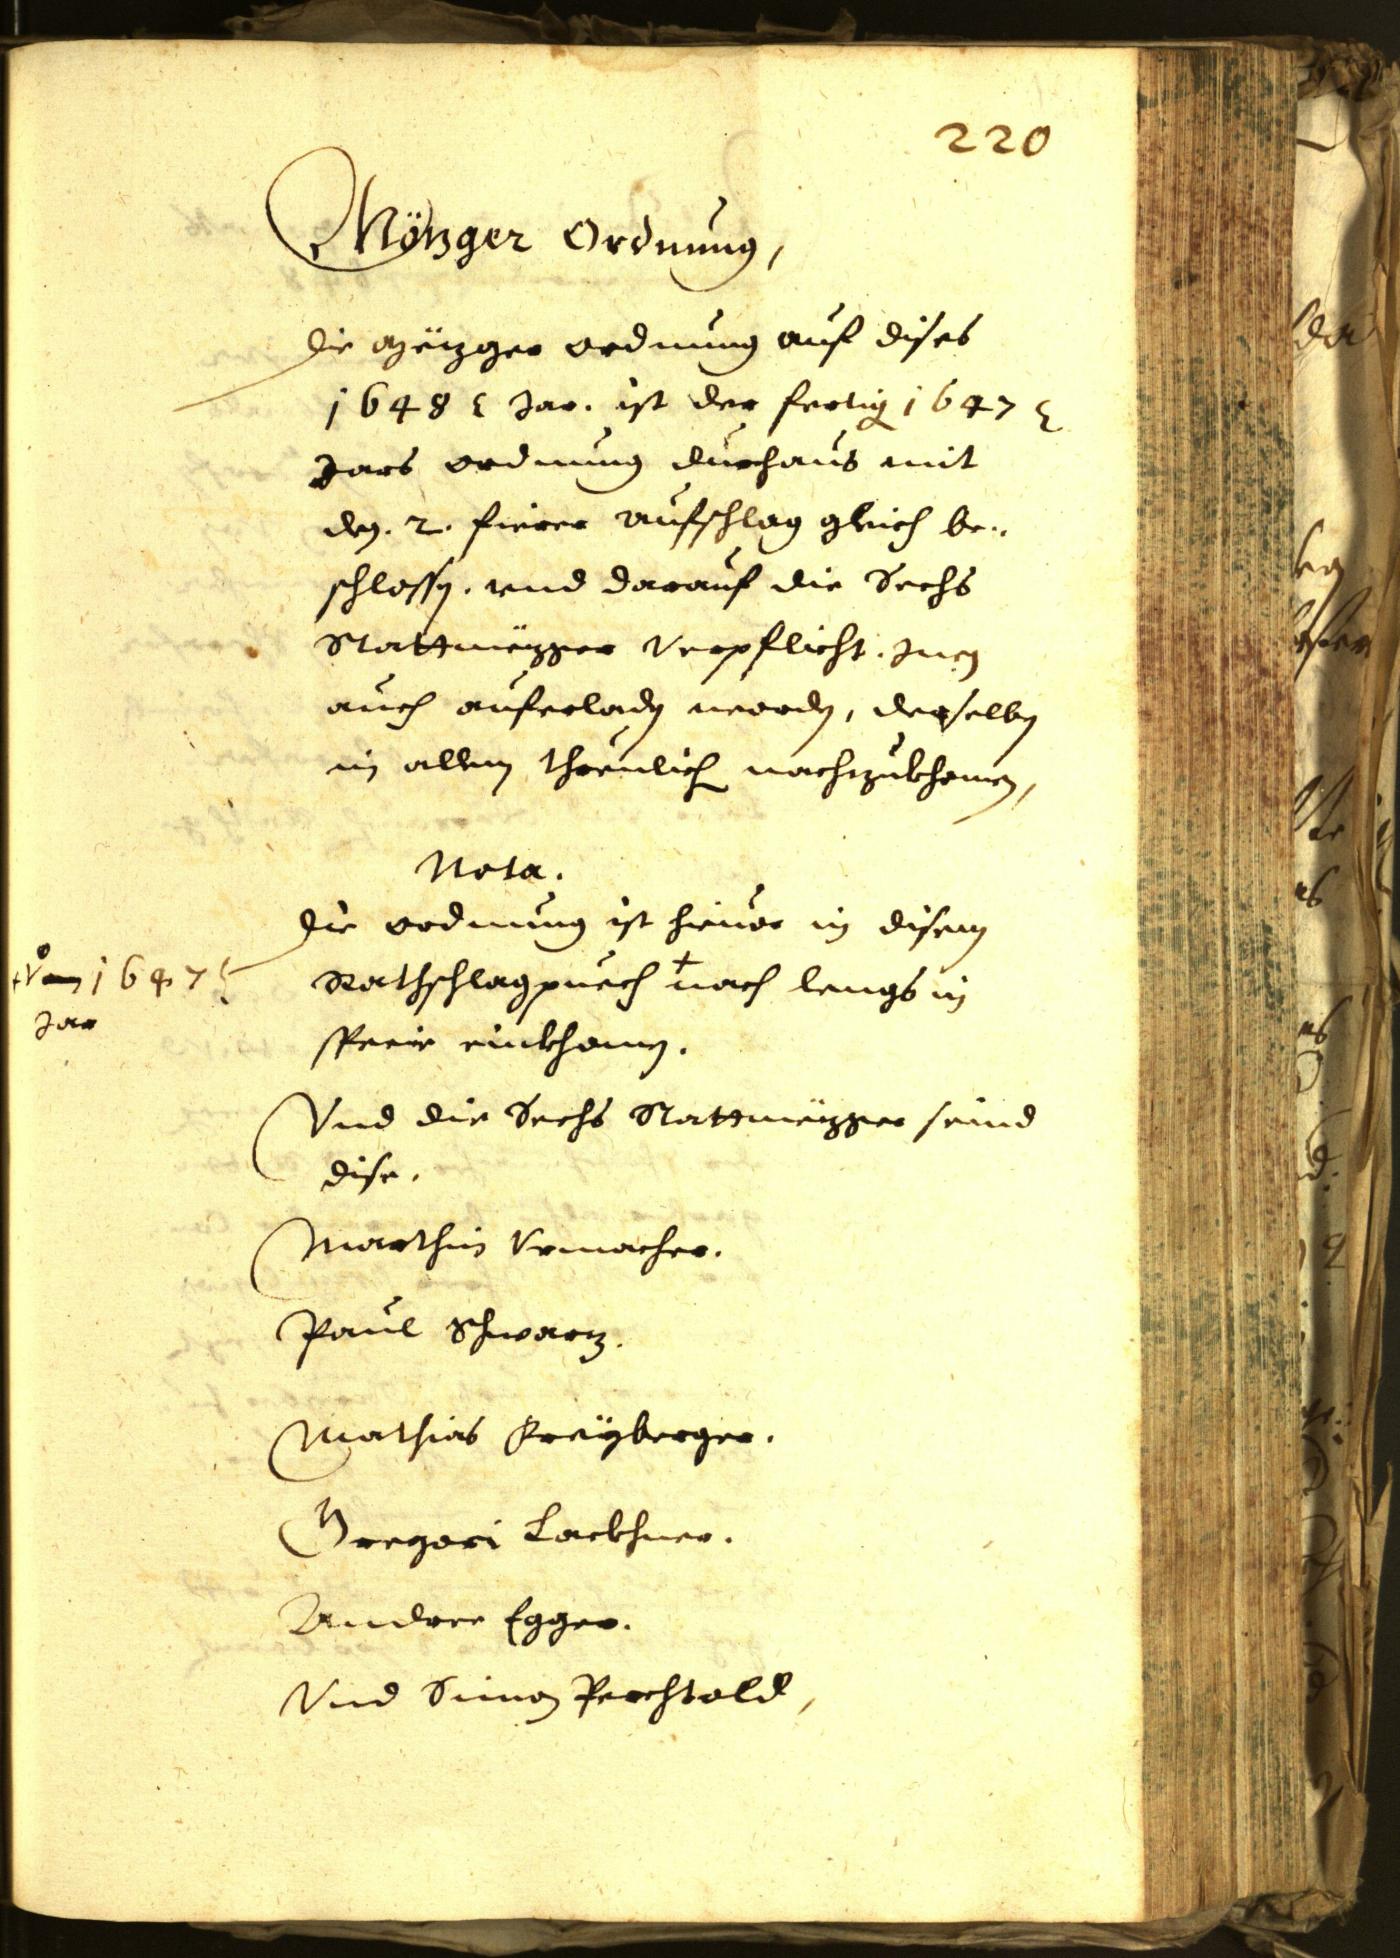 220
Mötzger Ordnung,
Die Mëtzger ordnung auf dises
1648 Jar. ist der fertig 1647
Jars ordnung durchaus mit
den. 2. fierer aufschlag gleich be„
schlossen. vnd darauf die Sechs
Stattmëtzger Verpflicht. Inen
auch auferladen worden, derselben
in allem threulich nachzukhomen,
Nota.
Die ordnung ist hieuor in disem
Rathschlagpuech + nach lengs in
einkhomen.
+ Vom 1647
Jar
Vnd die Sechs Stattmëtzger seind
dise.
Marthin Vrmacher.
Paul Schwartz.
Mathias Kreÿberger.
Gregori Lackhner.
Andree Egger.
Vnd Simon Perchtold,